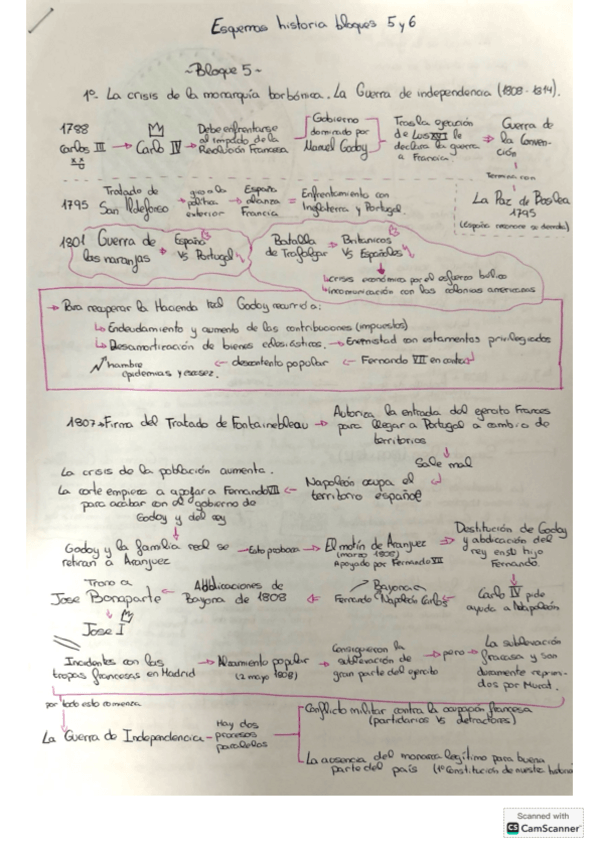 Esquemas historia bloques 5 y 6
~Bloque 5~
1º- La crisis de la monarquía borbónica. La Guerra de independencia (1808-1814).
1788
Carlos III → Carlo IV → Debe enfrentarse al impacto de la Revolución Francesa
Gobierno dominado por Manuel Godoy
Tras la ejecución de Luis XVI le declara la guerra a Francia
⇒ Guerra de la Convención
Termina con
La Paz de Basilea
1795
(España reconoce su derrota)
1795 Tratado de San Ildefonso → política exterior → España alianza Francia = Enfrentamiento con Inglaterra y Portugal.
1801 Guerra de las naranjas → España VS Portugal
Batalla de Trafalgar → Británicos VS Españoles
↳ crisis económica por el esfuerzo bélico
↳ incomunicación con las colonias americanas
→ Para recuperar la Hacienda real Godoy recurrió a:
↳ Endeudamiento y aumento de las contribuciones (impuestos)
↳ Desamortización de bienes eclesiásticos. → Enemistad con estamentos privilegiados
hambre epidemias y escasez. ← descontento popular ← Fernando VII en contra
1807 → Firma del Tratado de Fontainebleau → Autoriza la entrada del ejercito Frances
para llegar a Portugal a cambio de
territorios
↓
Sale mal
Napoleón ocupa el territorio español
La crisis de la población aumenta.
La corte empieza a apoyar a Fernando VII ←
para acabar con el gobierno de
Godoy y del rey
↓
Godoy y la familia real se retiran a Aranjuez → Esto provoca → El motín de Aranjuez
(marzo 1808)
Apoyado por Fernando VII
⇒ Destitución de Godoy
y abdicación del
rey en su hijo
Fernando.
↓
Carlo IV pide
ayuda a Napoleón
Bayona
Fernando Napoleón Carlos
← Abdicaciones de
Bayona de 1808
← Trono a
Jose Bonaparte
↓
Jose I
Incidentes con las
tropas francesas en Madrid
→ Alzamiento popular
(2 mayo 1808)
→ Consiguieron la
sublevación de
gran parte del ejercito
→ pero → La sublevación
fracasa y son
duramente reprimidos por Murat.
por todo esto comienza
La Guerra de Independencia - Hay dos procesos paralelos
Conflicto militar contra la ocupación francesa
(partidarios VS detractores)
La ausencia del monarca legítimo para buena
parte del país (1º Constitución de nuestra historia
Scanned with
CS CamScanner